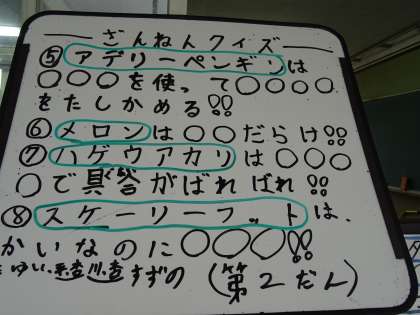 ざんねんクイズ
⑤アデリーペンギンは
○○○を使って○○○○
をたしかめる!!
⑥メロンは○○だらけ!!
⑦ハゲウアカリは○○○
○で具合がばればれ!!
⑧スケーリーフットは、
かいなのに○○○!!
すずの(第2だん)